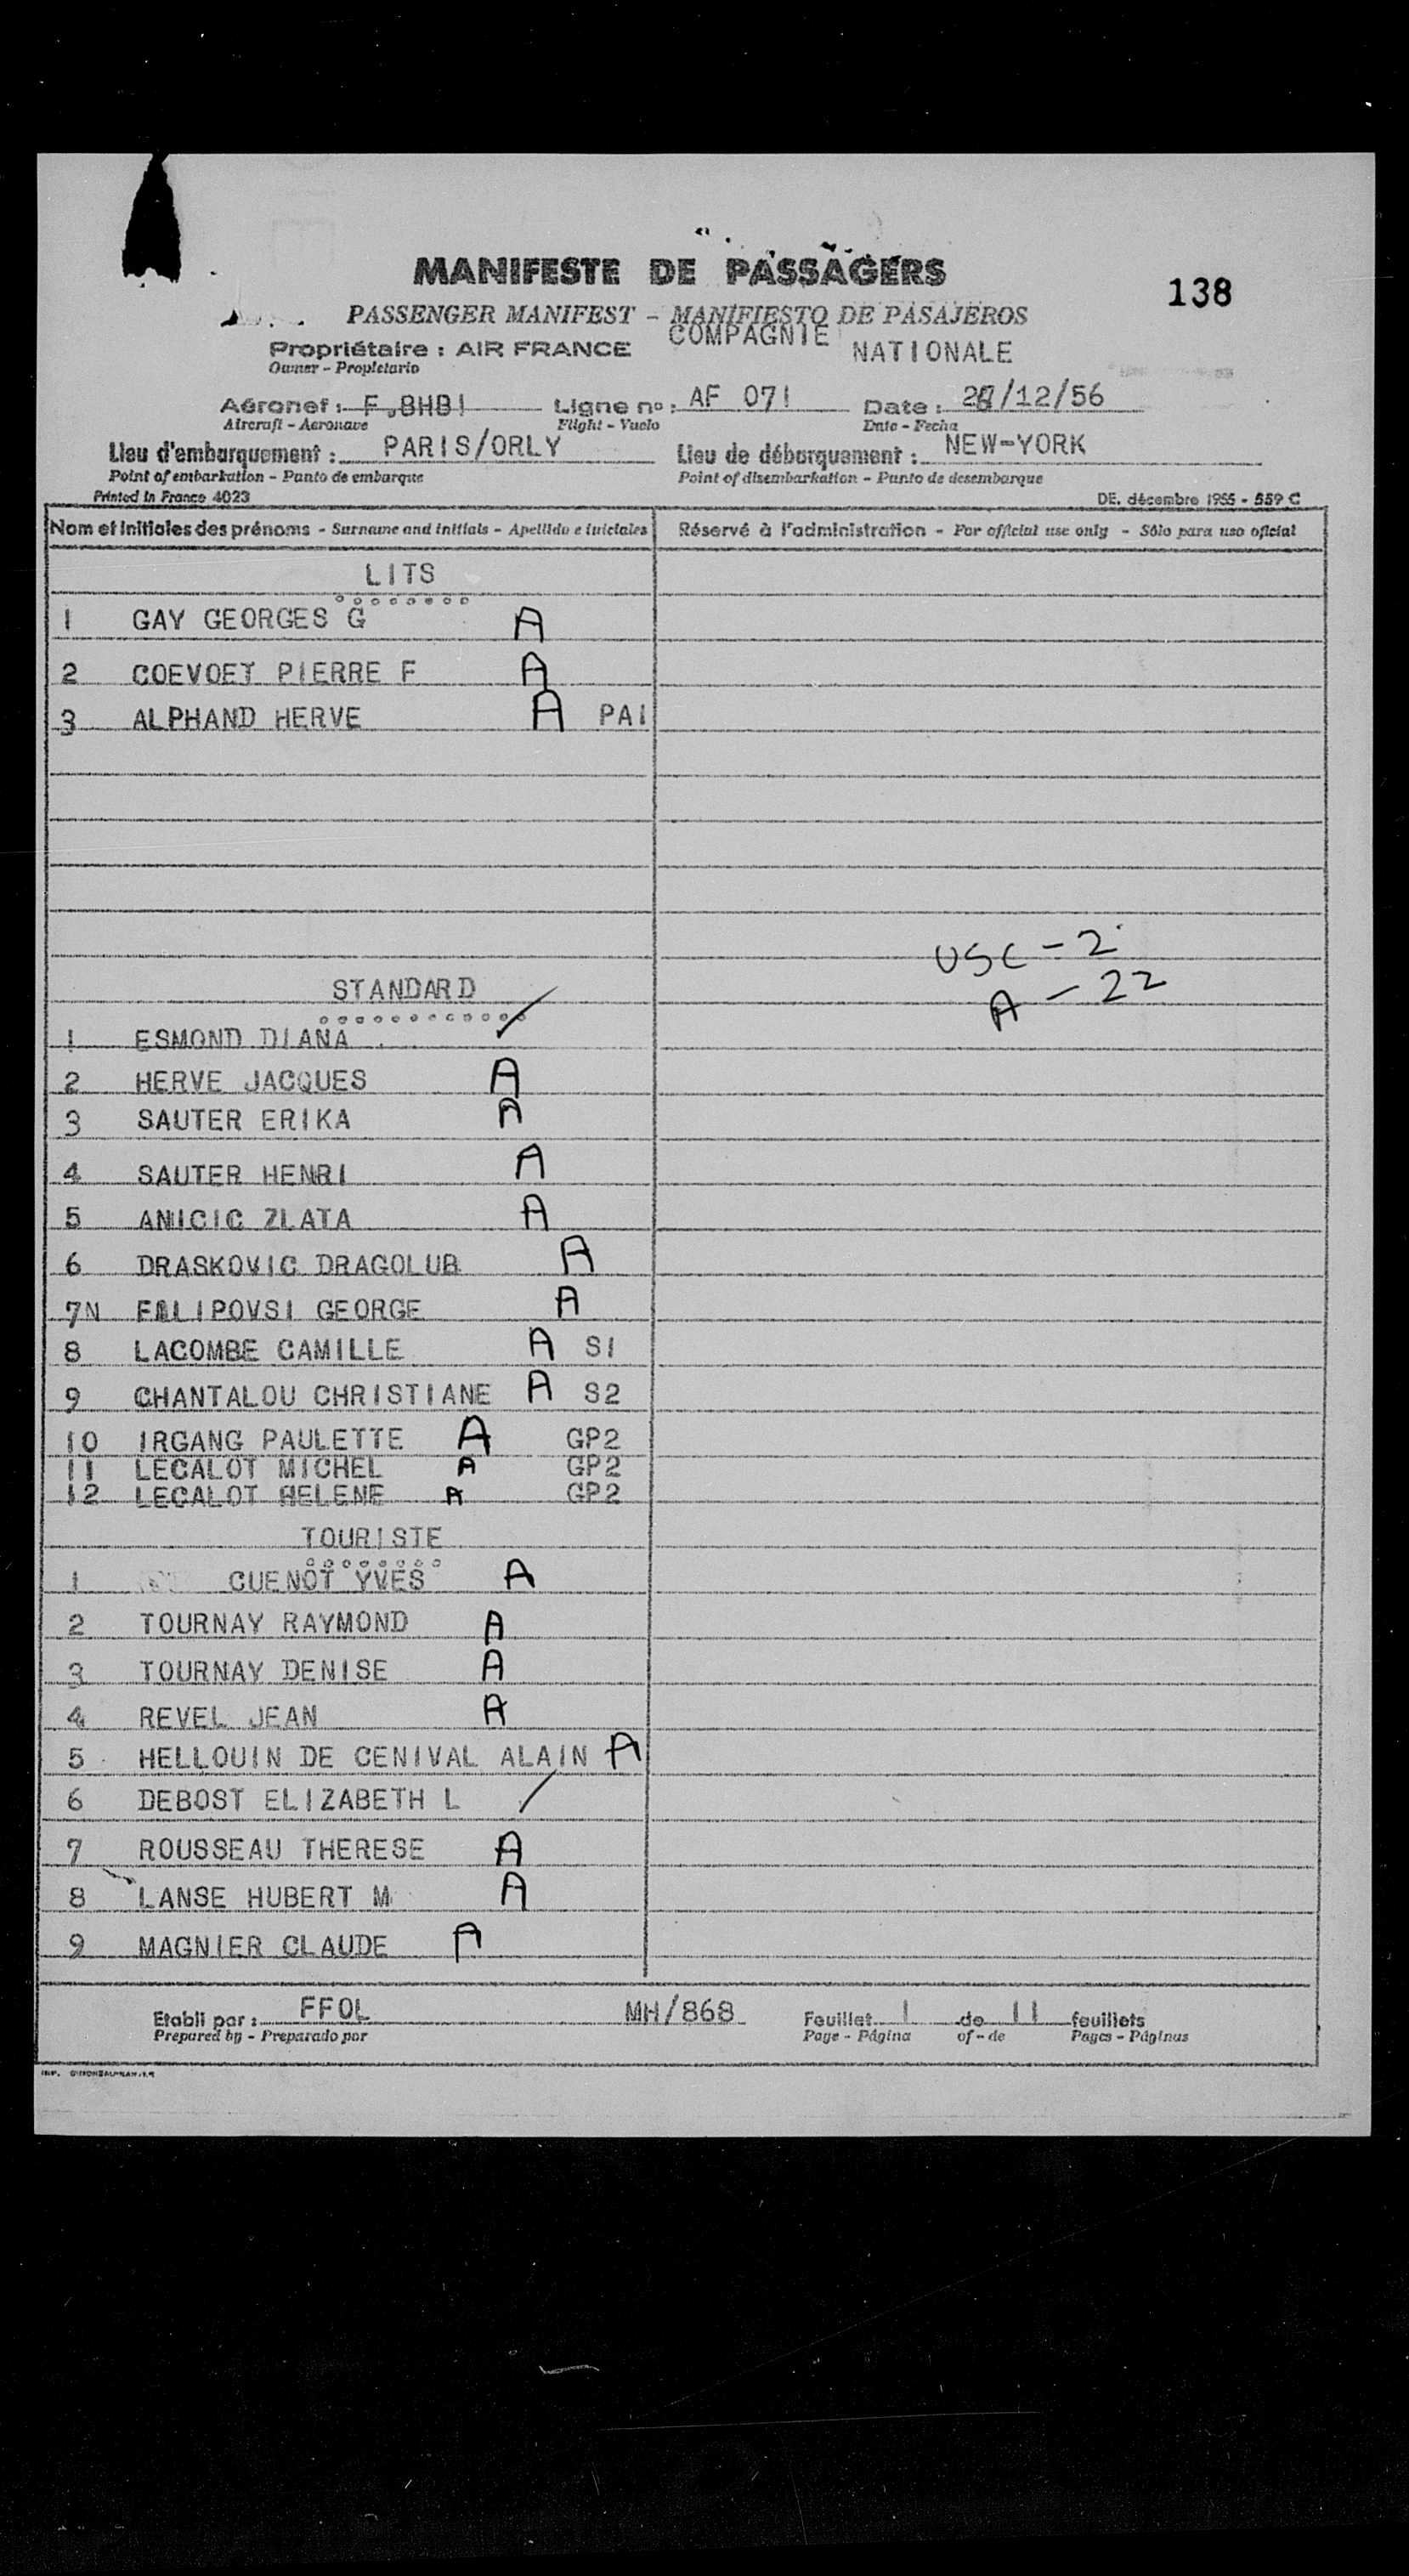 MANIFESTE DE PASSAGERS
138
PASSENGER MANIFEST - MANIFIESTO DE PASAJEROS
Propriétaire : AIR FRANCE COMPAGNIE NATIONALE
Owner - Propietario
Aéronef : F.BHBI Ligne no : AF 071 Date : /12/56
Aircraft - Aeronave Flight - Vuelo Date - Fecha
Lieu d'embarquement : PARIS/ORLY Lieu de débarquement : NEW-YORK
Point of embarkation - Punto de embarque Point of disembarkation - Punto de desembarque
Printed in France 4023 DE. décembre 1955 - 559 C
Nom et initiales des prénoms - Surname and initials - Apellido e iniciales Réservé à l'administration - For official use only - Sólo para uso oficial
LITS
1 GAY GEORGES G A
2 COEVOET PIERRE F A
3 ALPHAND HERVE A PAI
USC - 2
A - 22
STANDARD
1 ESMOND DIANA
2 HERVE JACQUES A
3 SAUTER ERIKA A
4 SAUTER HENRI A
5 ANICIC ZLATA A
6 DRASKOVIC DRAGOLUB A
7N FILIPOVSI GEORGE A
8 LACOMBE CAMILLE A S1
9 CHANTALOU CHRISTIANE A S2
10 IRGANG PAULETTE A GP2
11 LECALOT MICHEL A GP2
12 LECALOT HELENE A GP2
TOURISTE
1 CUENOT YVES A
2 TOURNAY RAYMOND A
3 TOURNAY DENISE A
4 REVEL JEAN A
5 HELLOUIN DE CENIVAL ALAIN A
6 DEBOST ELIZABETH L
7 ROUSSEAU THERESE A
8 LANSE HUBERT M A
9 MAGNIER CLAUDE A
Etabli par : FFOL MH/868 Feuillet 1 de 11 feuillets
Prepared by - Preparado por Page - Página of - de Pages - Páginas